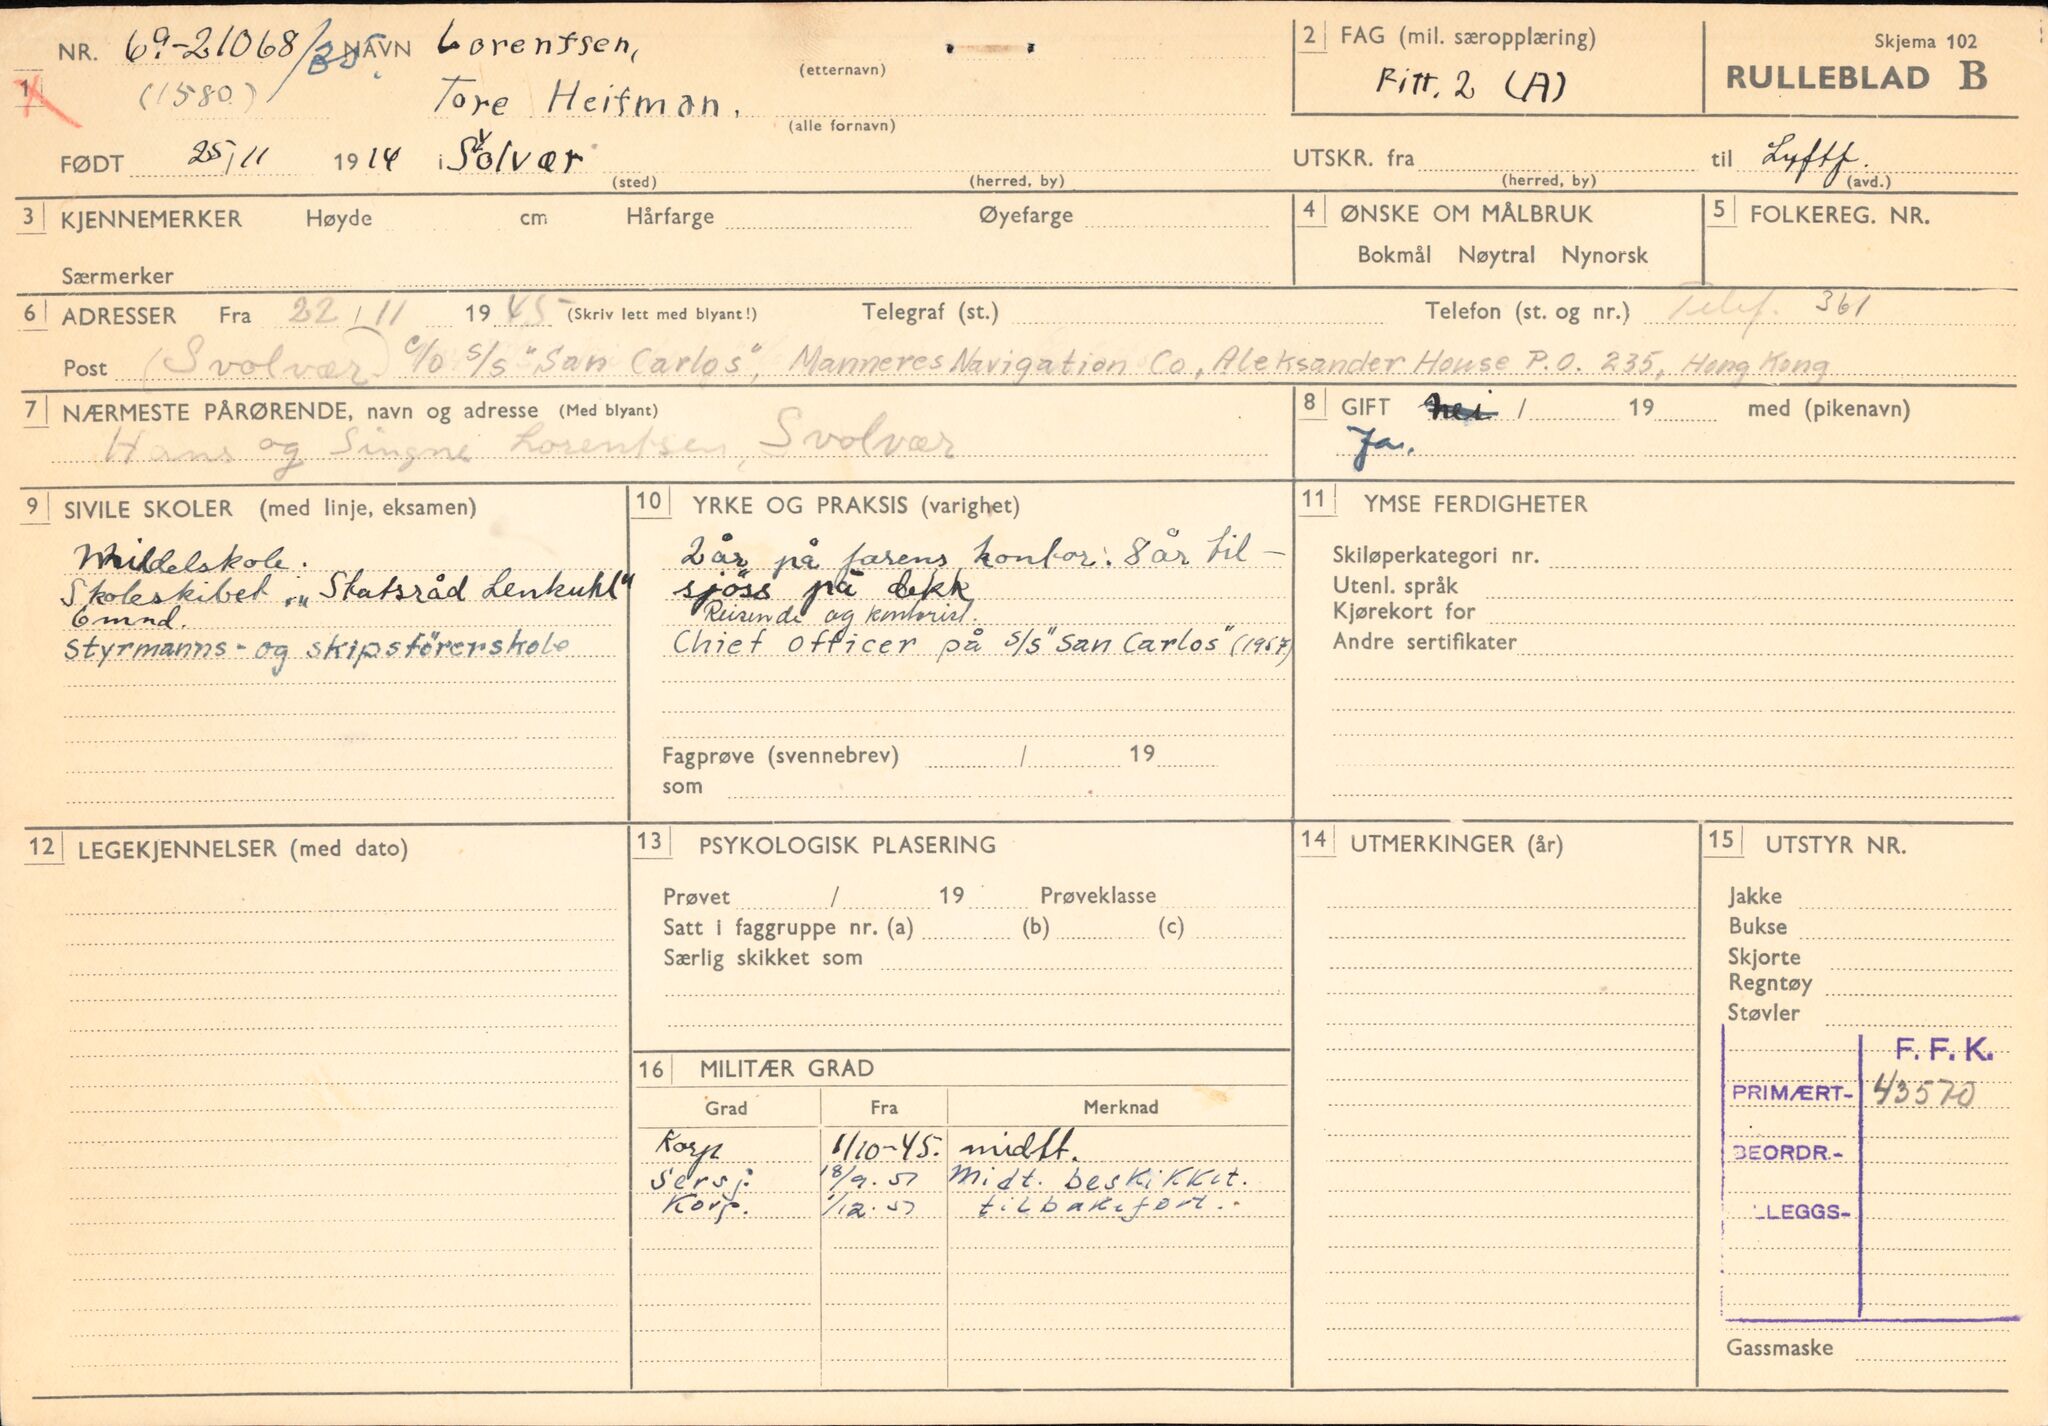 NR. 69-21068/35. NAVN Lorentsen, (etternavn)
1 (1580) Tore Heitman. (alle fornavn)
FØDT 25/11 1914 i Svolvær (sted) (herred, by)
2 FAG (mil. særopplæring)
Fitt. 2 (A)
Skjema 102
RULLEBLAD B
UTSKR. fra (herred, by) til Lyftf. (avd.)
3 KJENNEMERKER Høyde cm Hårfarge Øyefarge
Særmerker
4 ØNSKE OM MÅLBRUK
Bokmål Nøytral Nynorsk
5 FOLKEREG. NR.
6 ADRESSER Fra 22/11 1945 (Skriv lett med blyant!) Telegraf (st.) Telefon (st. og nr.) Telef. 361
Post (Svolvær) c/o s/s "San Carlos", Manneres Navigation Co, Aleksander House P.O. 235, Hong Kong
7 NÆRMESTE PÅRØRENDE, navn og adresse (Med blyant)
Hans og Singne Lorentsen, Svolvær
8 GIFT nei / 19 med (pikenavn)
Ja.
9 SIVILE SKOLER (med linje, eksamen)
Middelskole.
Skoleskibet "Statsråd Lenkuhl"
6 mnd.
Styrmanns- og skipsførerskole
10 YRKE OG PRAKSIS (varighet)
2 år på farens kontor. 8 år til-
sjöss på dekk
Reisende og kontorist.
Chief Officer på s/s "San Carlos" (1957)
Fagprøve (svennebrev) / 19
som
11 YMSE FERDIGHETER
Skiløperkategori nr.
Utenl. språk
Kjørekort for
Andre sertifikater
12 LEGEKJENNELSER (med dato)
13 PSYKOLOGISK PLASERING
Prøvet / 19 Prøveklasse
Satt i faggruppe nr. (a) (b) (c)
Særlig skikket som
14 UTMERKINGER (år)
15 UTSTYR NR.
Jakke
Bukse
Skjorte
Regntøy
Støvler
F. F. K.
PRIMÆRT- 43570
BEORDR.-
LEGGS-
Gassmaske
16 MILITÆR GRAD
Grad Fra Merknad
Korp 1/10-45. midlt.
Sersj. 18/9.51 Midt. beskikket.
Korp. 1/12.51 tilbakeført.